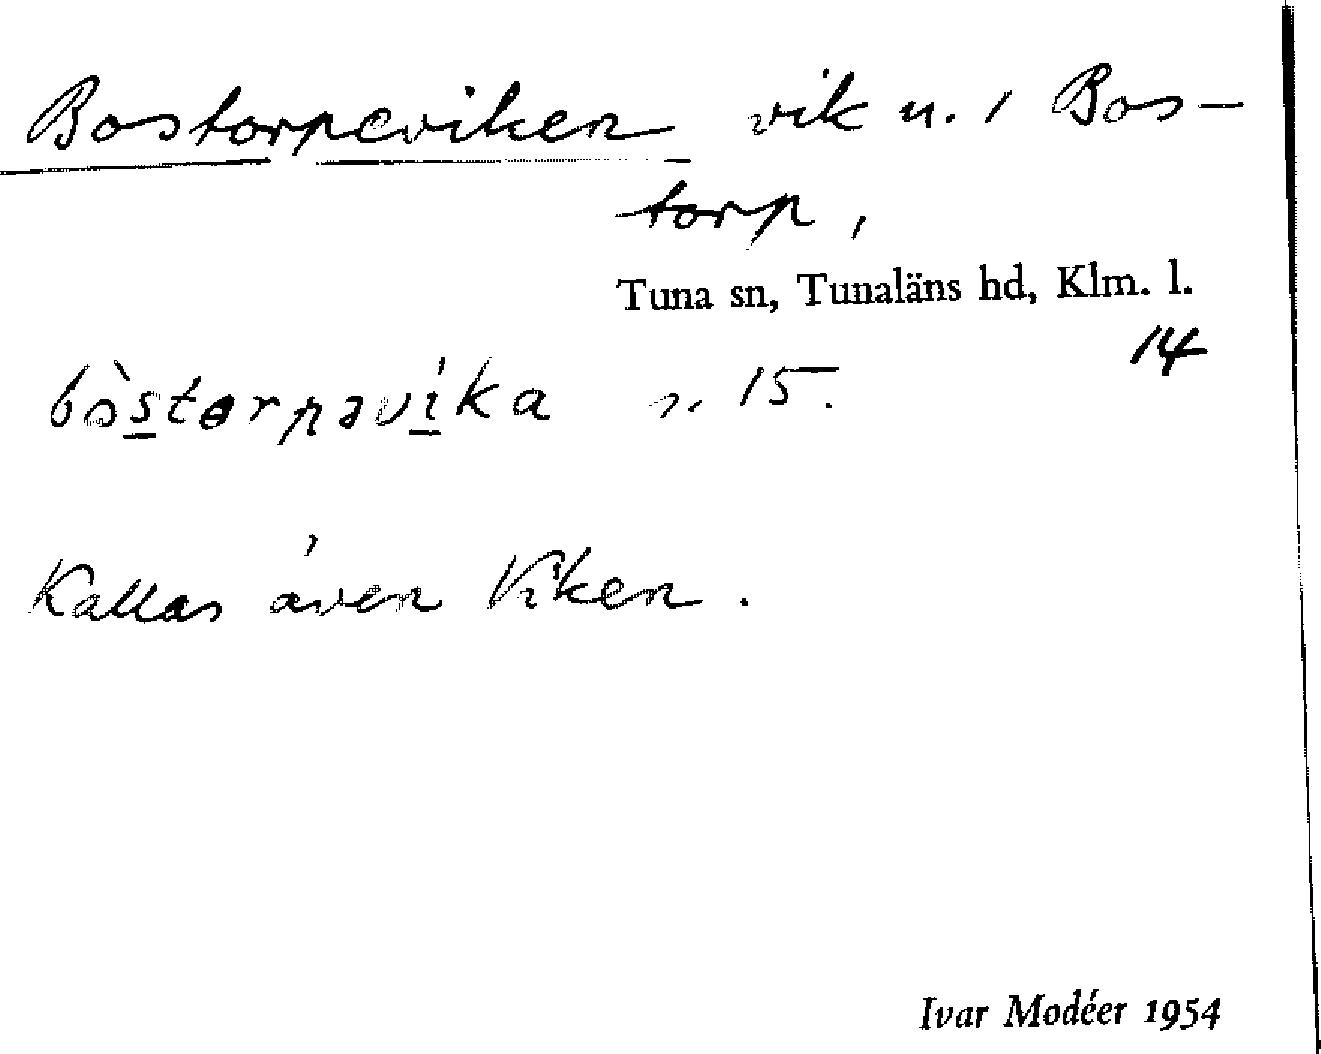 Bostorpeviken vik n. i Bos-
torp,
Tuna sn, Tunaläns hd, Klm. l.
14
bòstorpəvíka s. 15.
Kallas även Viken.
Ivar Modéer 1954